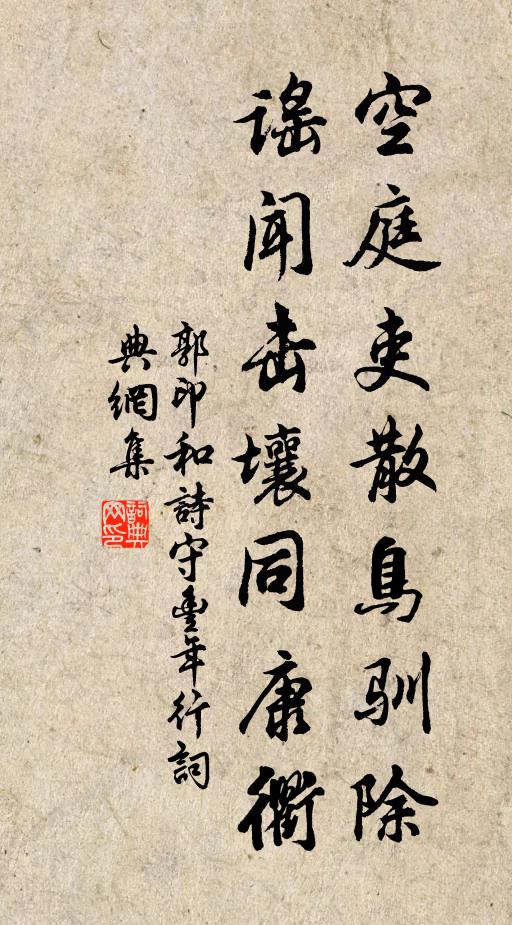 空庭吏散鳥馴除
謡闻击壤同康衢
郭印和詩守豊年行詞
典網集
詞典网印